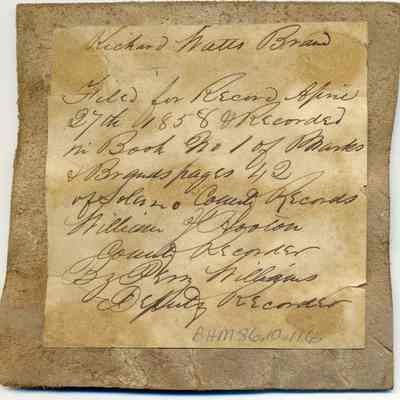 Richard Watts Brand
Filed for Record April
27th 1858 & Recorded
in Book No 1 of Marks
& Brands pages 42
of Solano County Records
William Hooton
County Recorder
By Perry Williams
Deputy Recorder
BHM 86.10.